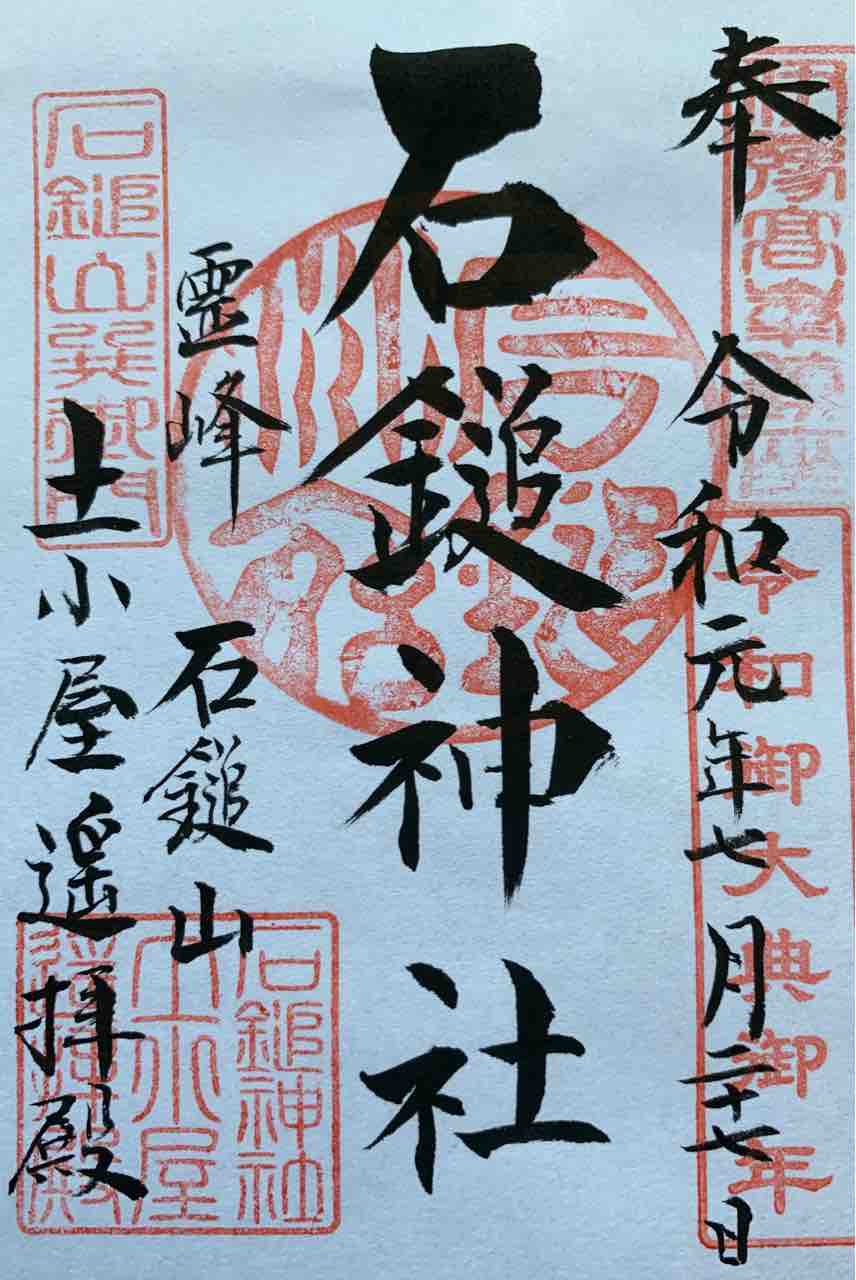 奉
令和元年七月二十七日
令和御大典御年
石鎚神社
霊峰
石鎚山
土小屋遥拝殿
石鎚山巽御門
石鎚神社
土小屋
遥拝殿